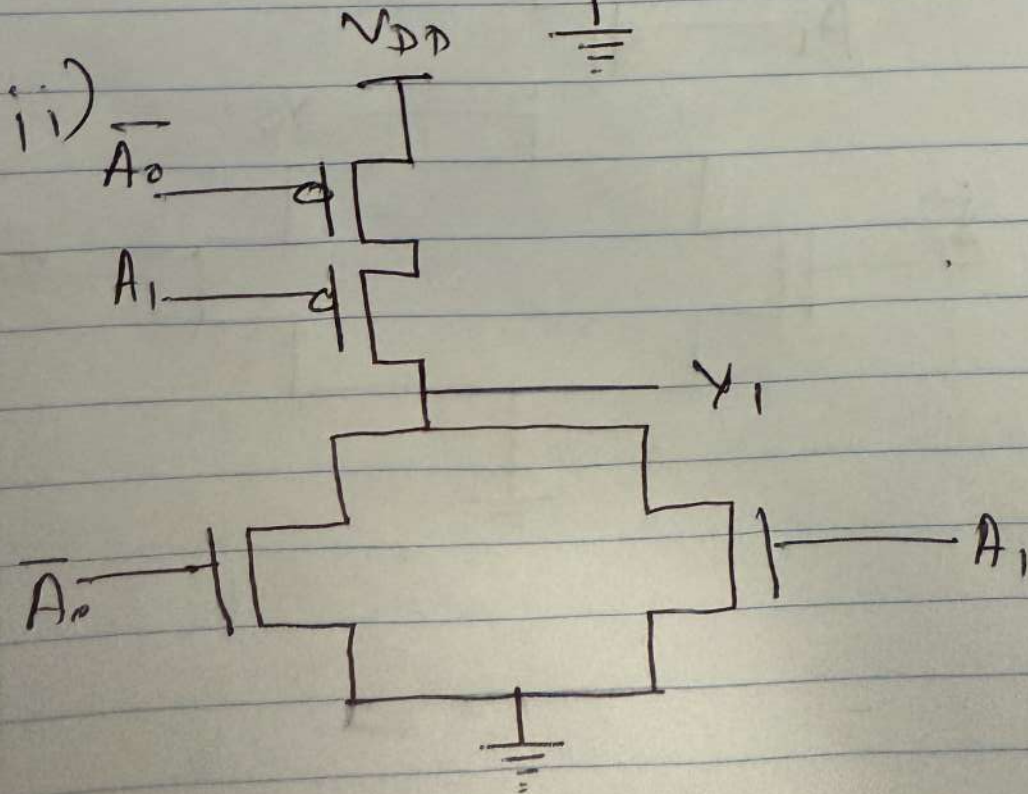 V_DD
ii)
A̅₀
A₁
Y₁
A̅₀
A₁